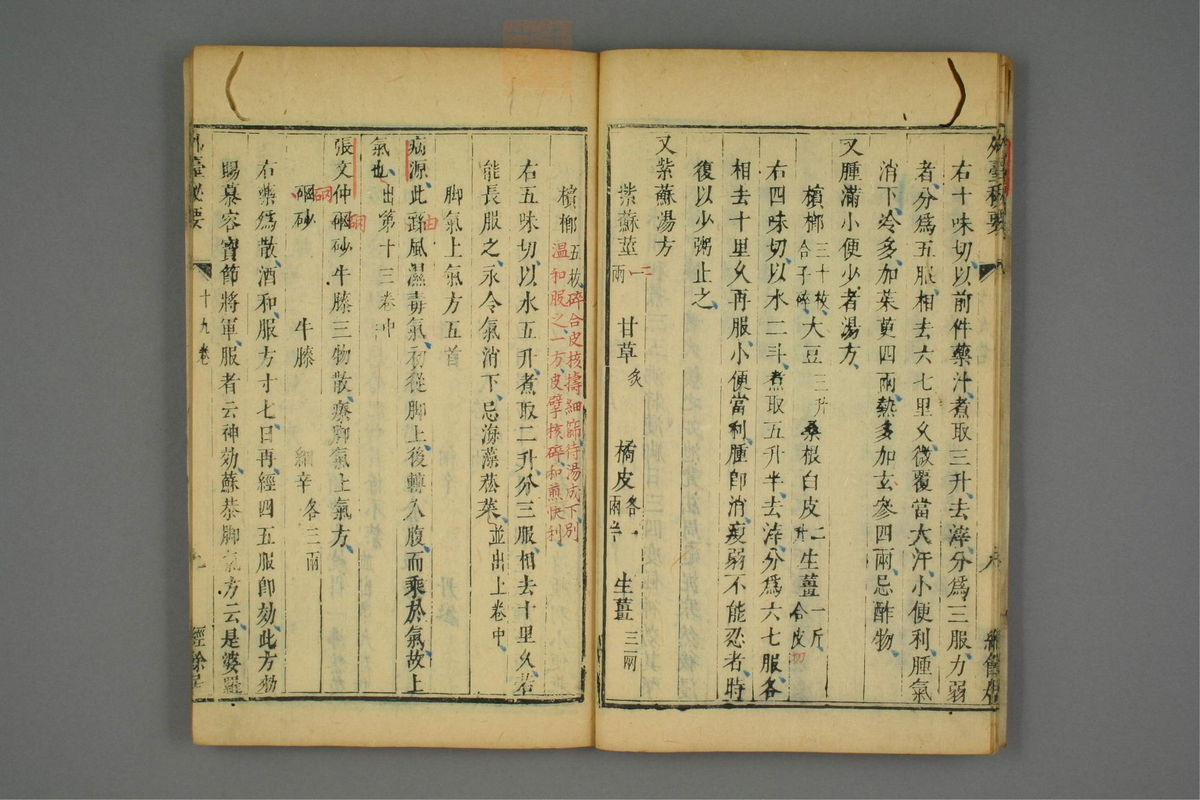 外臺秘要
右十味切以前件藥汁煮取三升去滓分爲三服力弱
者分爲五服相去六七里久微覆當大汗小便利腫氣
消下冷多加茱萸四兩熱多加玄參四兩忌酢物
又腫滿小便少者湯方
檳榔三十枚合子碎 大豆三升 桑根白皮二升 生薑一斤合皮切
右四味切以水二斗煮取五升半去滓分爲六七服各
相去十里久再服小便當利腫即消瘦弱不能忍者時
復以少粥止之
又紫蘇湯方
紫蘇莖一二兩 甘草炙 橘皮各一兩半 生薑三兩
檳榔五枚碎合皮核擣細篩待湯成下別
溫和服之一方皮擘核碎和煎快利
右五味切以水五升煮取二升分三服相去十里久若
能長服之永令氣消下忌海藻菘菜並出上卷中
脚氣上氣方五首
病源此由風濕毒氣初從脚上後轉入腹而乘於氣故上
氣也出第十三卷中
張文仲硇砂牛膝三物散療脚氣上氣方
硇砂 牛膝 細辛各三兩
右藥爲散酒和服方寸七日再經四五服即効此方勑
賜慕容寶節將軍服者云神効蘇恭脚氣方云是婆羅
外臺秘要
十九卷
九
經餘居